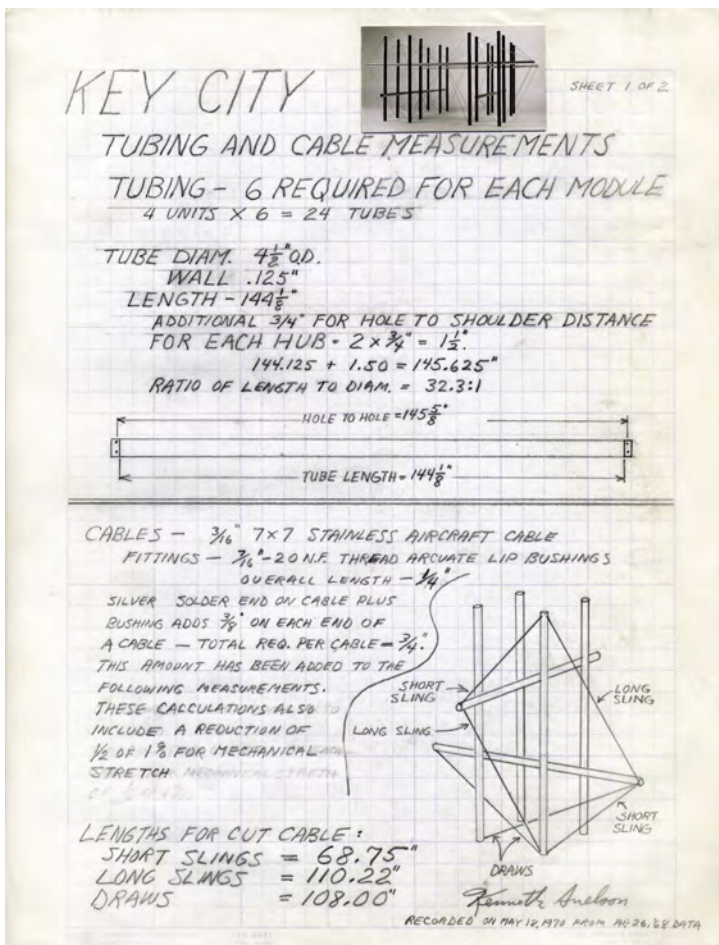 KEY CITY
SHEET 1 OF 2
TUBING AND CABLE MEASUREMENTS
TUBING - 6 REQUIRED FOR EACH MODULE
4 UNITS X 6 = 24 TUBES
TUBE DIAM. 4 1/2" O.D.
WALL .125"
LENGTH - 144 1/8"
ADDITIONAL 3/4" FOR HOLE TO SHOULDER DISTANCE
FOR EACH HUB - 2 x 3/4" = 1 1/2".
144.125 + 1.50 = 145.625"
RATIO OF LENGTH TO DIAM. = 32.3:1
HOLE TO HOLE = 145 5/8"
TUBE LENGTH = 144 1/8"
CABLES - 3/16" 7x7 STAINLESS AIRCRAFT CABLE
FITTINGS - 3/16"-20 N.F. THREAD ARCUATE LIP BUSHINGS
OVERALL LENGTH - 1/4"
SILVER SOLDER END ON CABLE PLUS
BUSHING ADDS 3/8" ON EACH END OF
A CABLE - TOTAL REQ. PER CABLE = 3/4".
THIS AMOUNT HAS BEEN ADDED TO THE
FOLLOWING MEASUREMENTS.
THESE CALCULATIONS ALSO
INCLUDE A REDUCTION OF
1/2 OF 1% FOR MECHANICAL
STRETCH
SHORT
SLING
LONG
SLING
LONG SLING
SHORT
SLING
DRAWS
LENGTHS FOR CUT CABLE:
SHORT SLINGS = 68.75"
LONG SLINGS = 110.22"
DRAWS = 108.00"
Kenneth Snelson
RECORDED ON MAY 18, 1970 FROM AP 26, '68 DATA